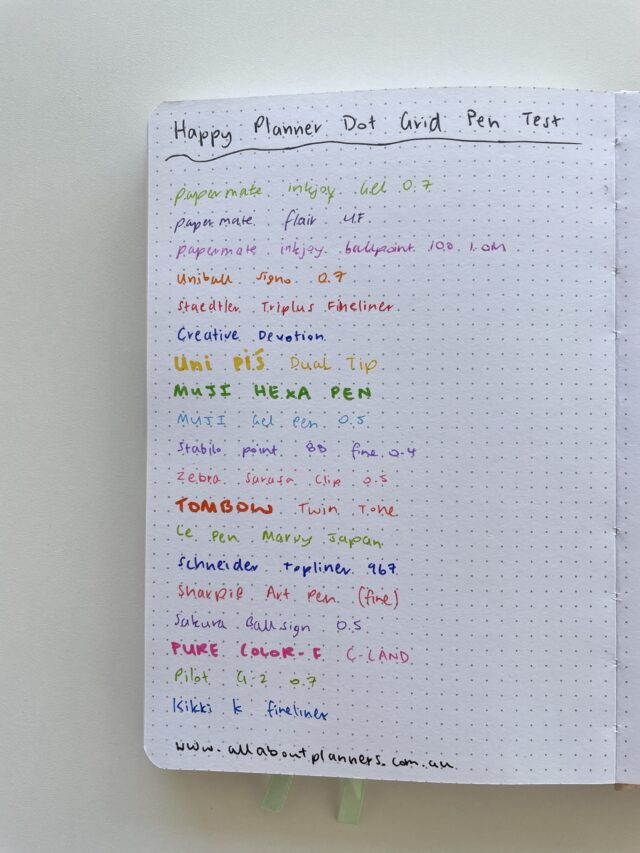 Happy Planner Dot Grid Pen Test
papermate inkjoy Gel 0.7
papermate flair UF
papermate inkjoy ballpoint 100 1.0M
Uniball signo 0.7
Staedtler Triplus Fineliner
Creative Devotion
Uni PiS Dual Tip
MUJI HEXA PEN
MUJI Gel Pen 0.5
Stabilo point 88 fine 0.4
Zebra Sarasa Clip 0.5
TOMBOW Twin Tone
Le Pen Marvy Japan
Schneider topliner 967
Sharpie Art Pen (fine)
Sakura Ballsign 0.5
PURE COLOR-F C-LAND
Pilot G-2 0.7
Kikki K fineliner
www.allaboutplanners.com.au